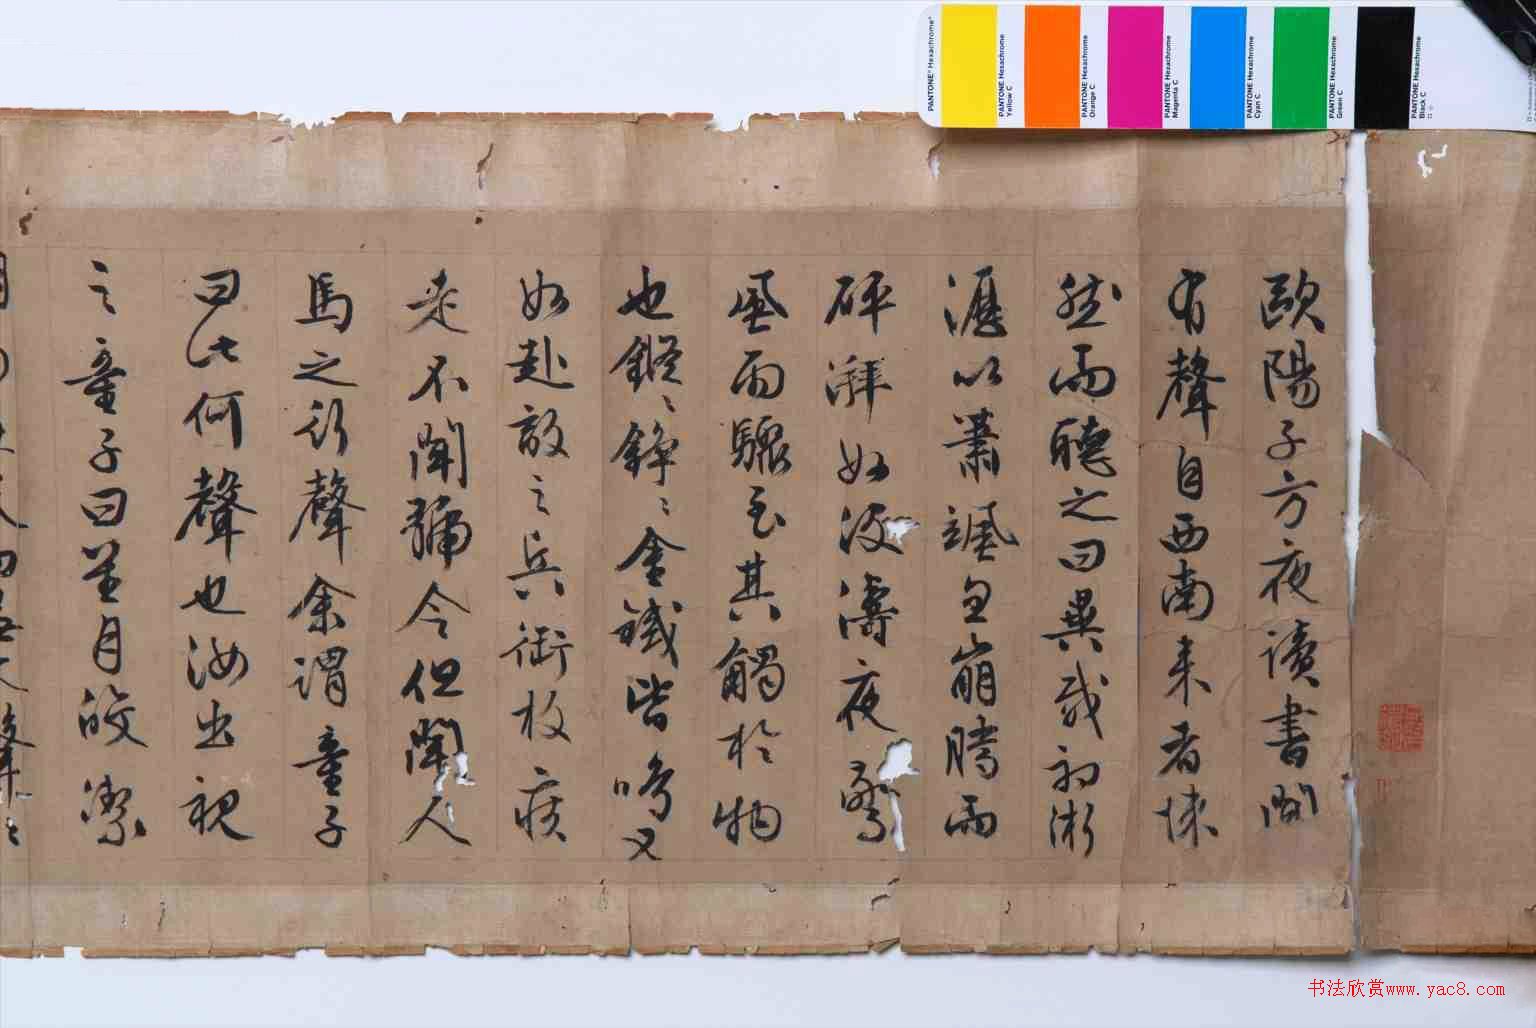 PANTONE® Hexachrome®
PANTONE Hexachrome Yellow C
PANTONE Hexachrome Orange C
PANTONE Hexachrome Magenta C
PANTONE Hexachrome Cyan C
PANTONE Hexachrome Green C
PANTONE Hexachrome Black C
歐陽子方夜讀書聞
有聲自西南来者悚
然而聽之曰異哉初淅
瀝以蕭颯忽崩騰而
砰湃如波濤夜驚
風雨驟至其觸於物
也鏦〻錚〻金鐵皆鳴又
如赴敵之兵銜枚疾
走不聞號令但聞人
馬之行聲余謂童子
曰此何聲也汝出視
之童子曰星月皎潔
书法欣赏www.yac8.com